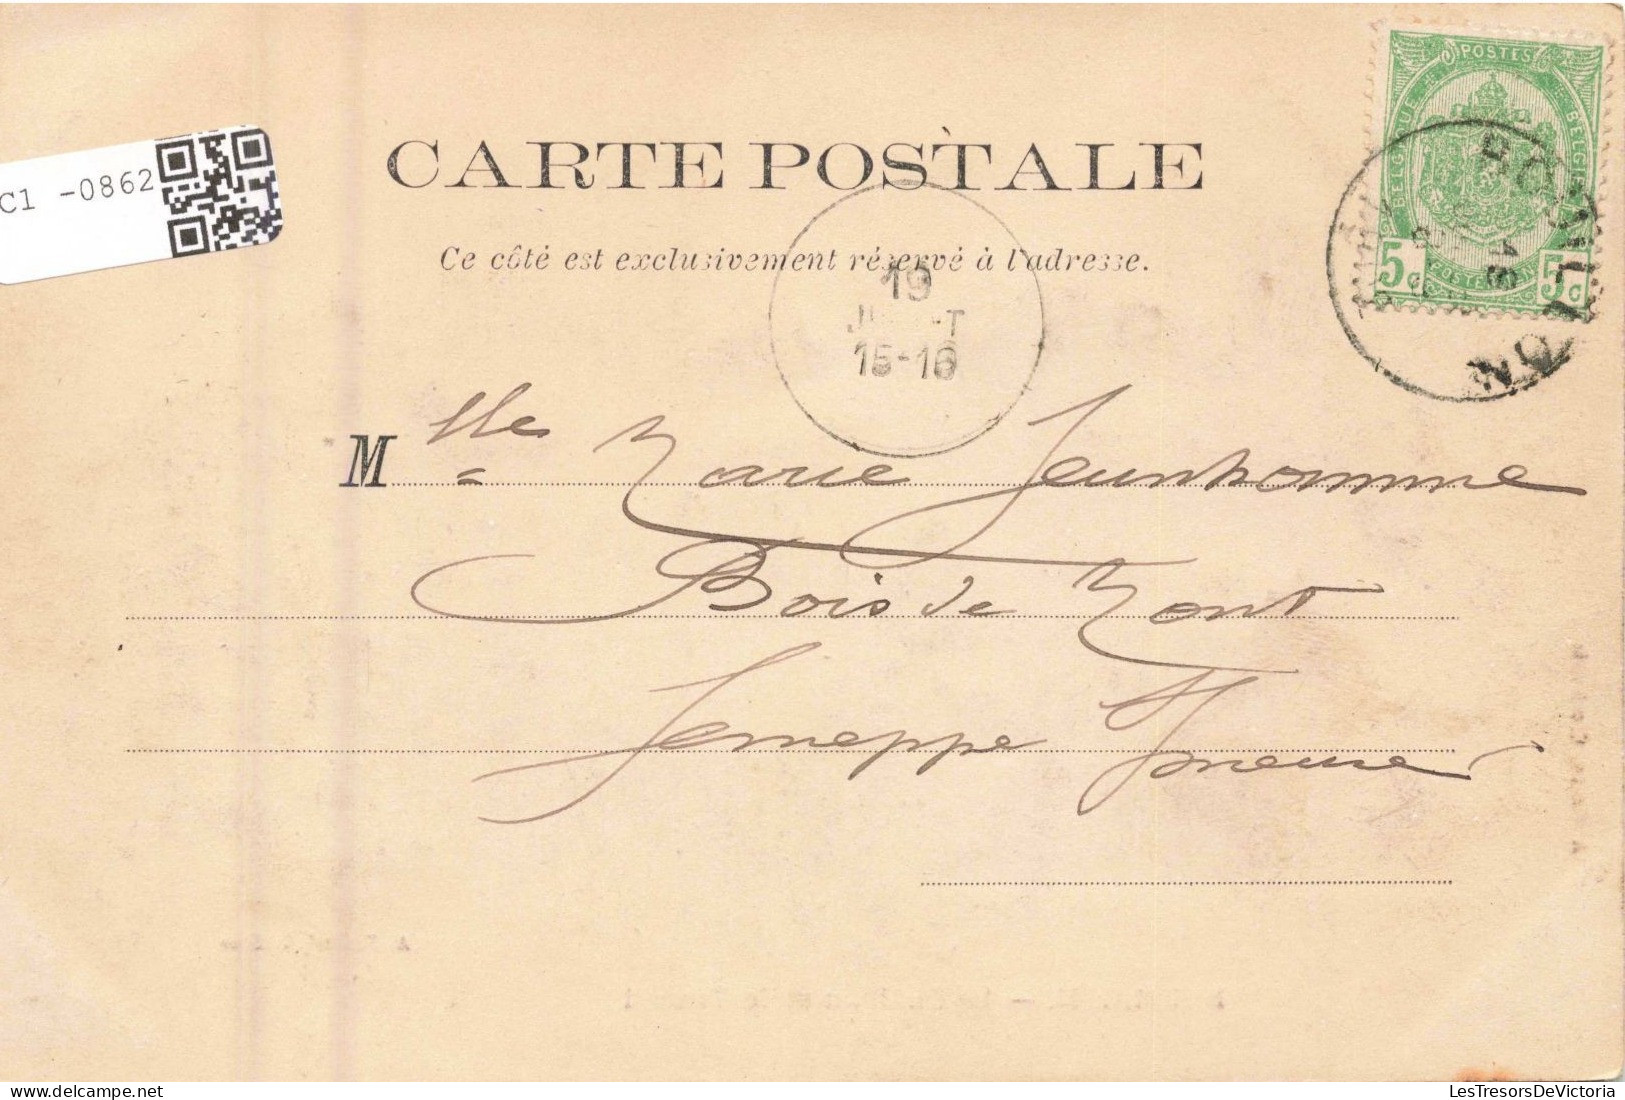 POSTES
BELGIQUE
BELGIË
5c
5c
POSTERIJEN
BOUILLON
18
C1 -0862
CARTE POSTALE
Ce côté est exclusivement réservé à l'adresse.
19
15-16
Mlle Marie Jeunhomme
Bois de Mont
Jemeppe s/meuse
LesTresorsDeVictoria